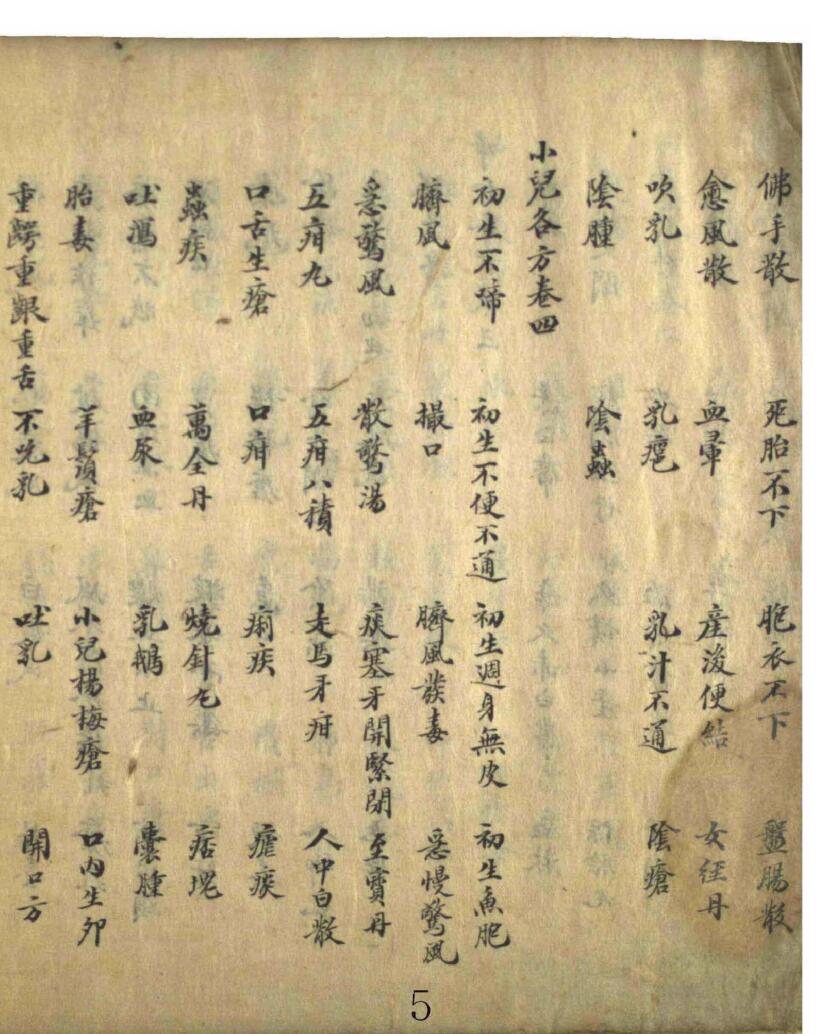 佛手散 死胎不下 胞衣不下 盤腸散
愈風散 血暈 產後便結 女經丹
吹乳 乳疤 乳汁不通 陰瘡
陰腫 陰蟲
小兒各方卷四
初生不啼 初生不便不通 初生週身無皮 初生魚胞
臍風 撮口 臍風發毒 急慢驚風
急驚風 散驚湯 痰塞牙關緊閉 至寶丹
五疳丸 五疳八積 走馬牙疳 人中白散
口舌生瘡 口疳 痢疾 瘧疾
蟲疾 萬全丹 燒針丸 痞塊
吐瀉 血尿 乳鵝 囊腫
胎毒 羊鬚瘡 小兒楊梅瘡 口內生卵
重齶重齦重舌 不吮乳 吐乳 開口方
5